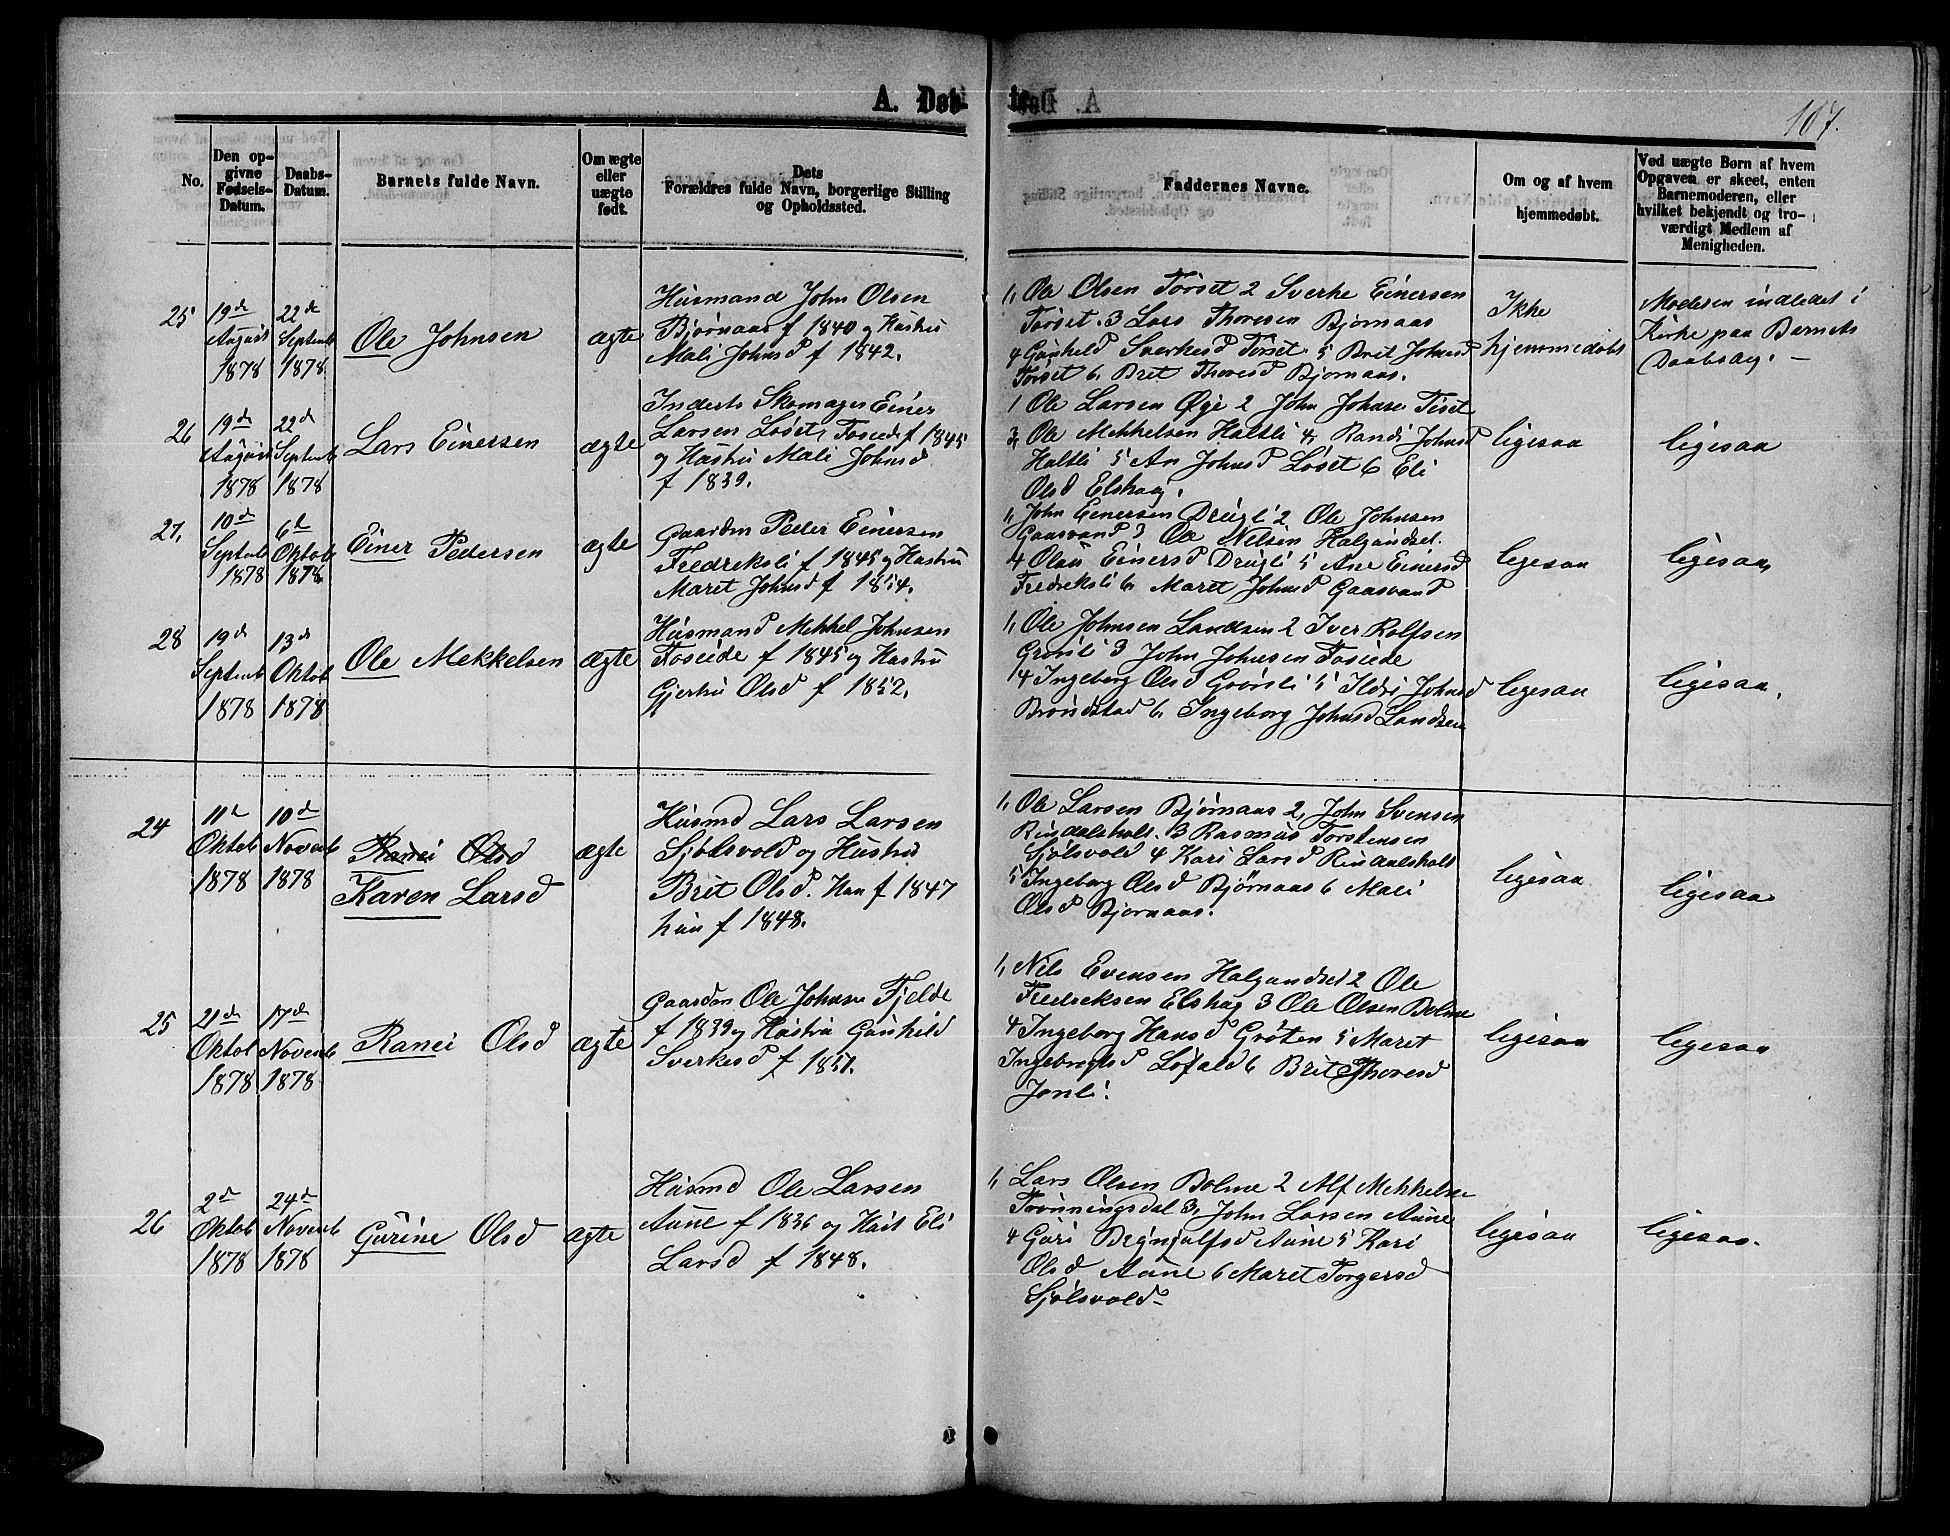 A. Døb-
te
107.
No.
Den op-
givne
Fødsels-
Datum.
Daabs-
Datum.
Barnets fulde Navn.
Om ægte
eller
uægte
født.
Dets
Forældres fulde Navn, borgerlige Stilling
og Opholdssted.
Faddernes Navne.
Om og af hvem
hjemmedøbt.
Ved uægte Børn af hvem
Opgaven er skeet, enten
Barnemoderen, eller
hvilket bekjendt og tro-
værdigt Medlem af
Menigheden.
25
19de
August
1878
22de
Septemb
1878.
Ole Johnsen
ægte
Husmand John Olsen
Bjørnaas f 1840 og Hustru
Mali Johnsd f 1842.
1, Ole Olsen Tørset 2 Sverke Einersen
Tørset. 3 Lars Thoresen Bjørnaas
4 Gunhild Sverkesd Tørset 5 Brit Johnsd
Tørset 6, Bret Thoresd Bjørnaas.
Ikke
hjemmedøbt
Moderen indledet i
Kirke paa Barnets
Daabsdag. —
26
19d
August
1878
22d
Septemb
1878
Lars Einersen
ægte
Inderst Skomager Einer
Larsen Løset, Foseide f 1845
og Hustru Mali Johnsd
f 1839.
1 Ole Larsen Øye 2 John Johnse Tiset
3, Ole Mekkelsen Haltli 4, Randi Johnsd
Haltli 5 An Johnsd Løset 6 Eli
Olsd Elshaug.
ligesaa
ligesaa
27,
10d
Septob
1878
6d
Oktob
1878.
Einer Pedersen
ægte
Gaardm Peder Einersen
Fredreksli f 1845 og Hustru
Maret Johnsd f 1854.
1, John Einersen Drugli 2 Ole Johnsen
Gaasvand 3 Ole Nilsen Halgundset.
4 Olau Einersd Drugli 5 Ane Einersd
Fredreksli 6, Maret Johnsd Gaasvand
ligesaa
ligesaa,
28
19d
Septemb
1878
13d
Oktob
1878
Ole Mekkelsen
ægte
Husmand Mekkel Johnsen
Foseide f 1845 og Hustru
Gjertru Olsd f 1852.
1, Ole Johnsen Landsen 2 Iver Rolfsen
Grønli 3 John Johnsen Foseide
4 Ingeborg Olsd Grønli 5 Ildri Johnsd
Brøndstad 6, Ingeborg Johnsd Landsem
ligesaa
ligesaa.
24
11d
Oktob
1878
10d
Novemb
1878
Ranei Olsd
Karen Larsd
ægte
Husmd Lars Larsen
Sjølsvold og Hustru
Brit Olsd. Han f 1847
hun f 1848.
1, Ole Larsen Bjørnaas 2, John Svensen
Rindalsholt. 3 Rasmus Torstensen
Sjølsvold 4 Kari Larsd Rindalsholt
5 Ingeborg Olsd Bjørnaas 6 Mali
Olsd Bjørnaas.
ligesaa
ligesaa
25
21de
Oktob
1878
17de
Novemb
1878
Ranei Olsd
ægte
Gaardm Ole Johnse Fjelde
f 1839 og Hustru Gunhild
Sverkesd f 1851.
1, Nils Evensen Halgundset 2 Ole
Fredreksen Elshag 3 Ole Olsen Bolme
4 Ingeborg Hansd Grøten 5 Maret
Ingebrigtsd Løfald 6 Brit Thoresd
Jonli.
ligesaa
ligesaa
26
2d
Oktob
1878
24d
Novemb
1878
Gurine Olsd
ægte
Husmd Ole Larsen
Aune f 1836 og Hust Eli
Larsd f 1848.
1, Lars Olsen Bolme 2 Alf Mekkelsen
Trønningsdal 3, John Larsen Aune
4 Guri Brynjulfsd Aune 5 Kari
Olsd Aune 6 Maret Torgersd
Sjølsvold-
ligesaa
ligesaa.